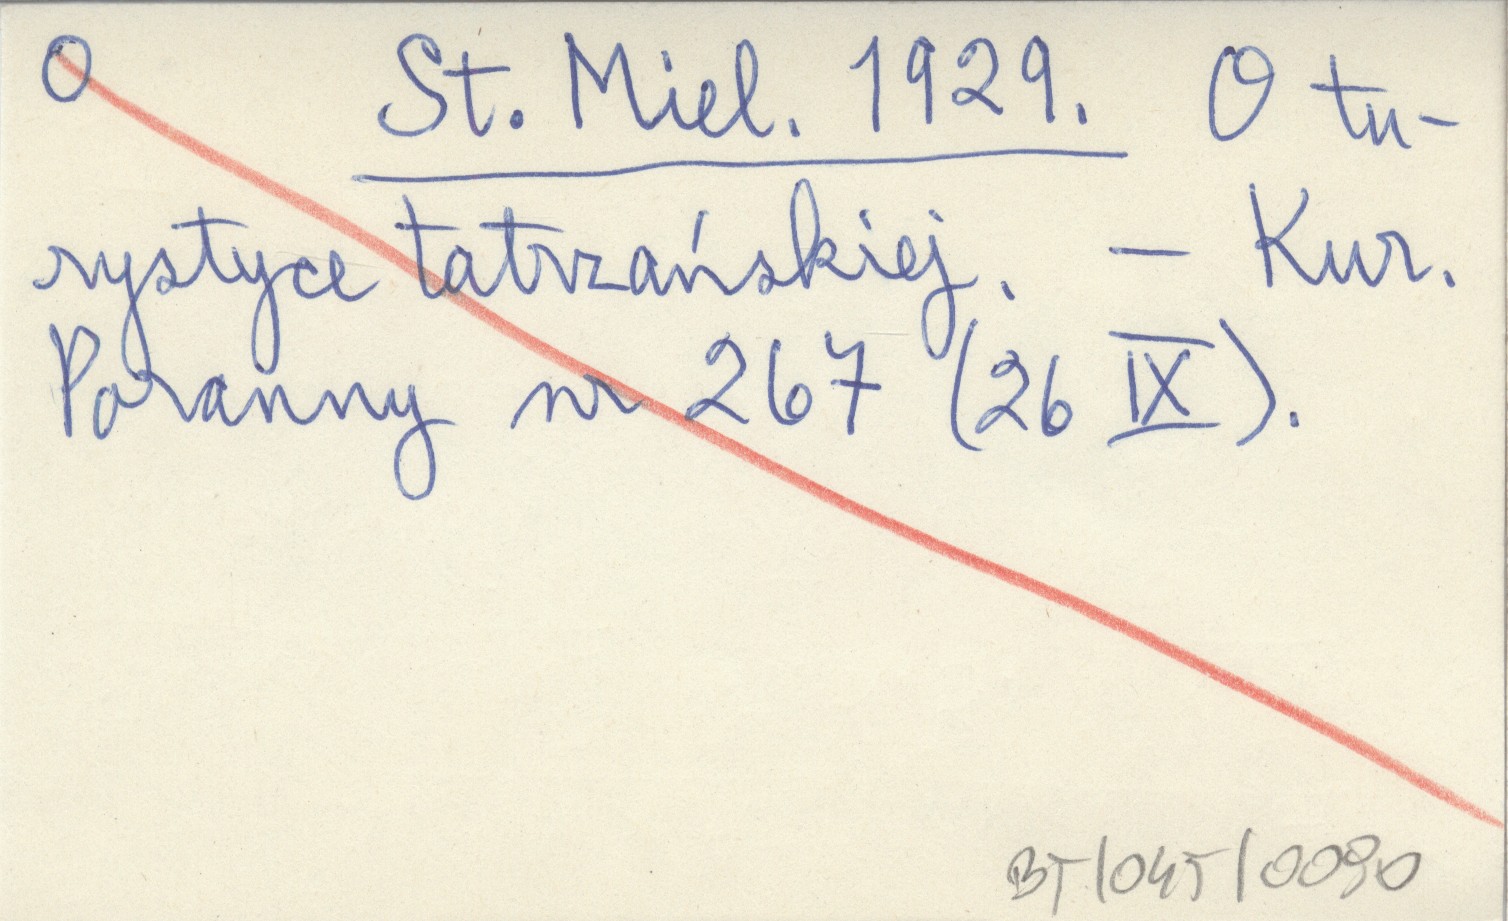 O St. Miel. 1929. O tu-
rystyce tatrzańskiej. — Kur.
Poranny nr 267 (26 IX).
BT/045/0090